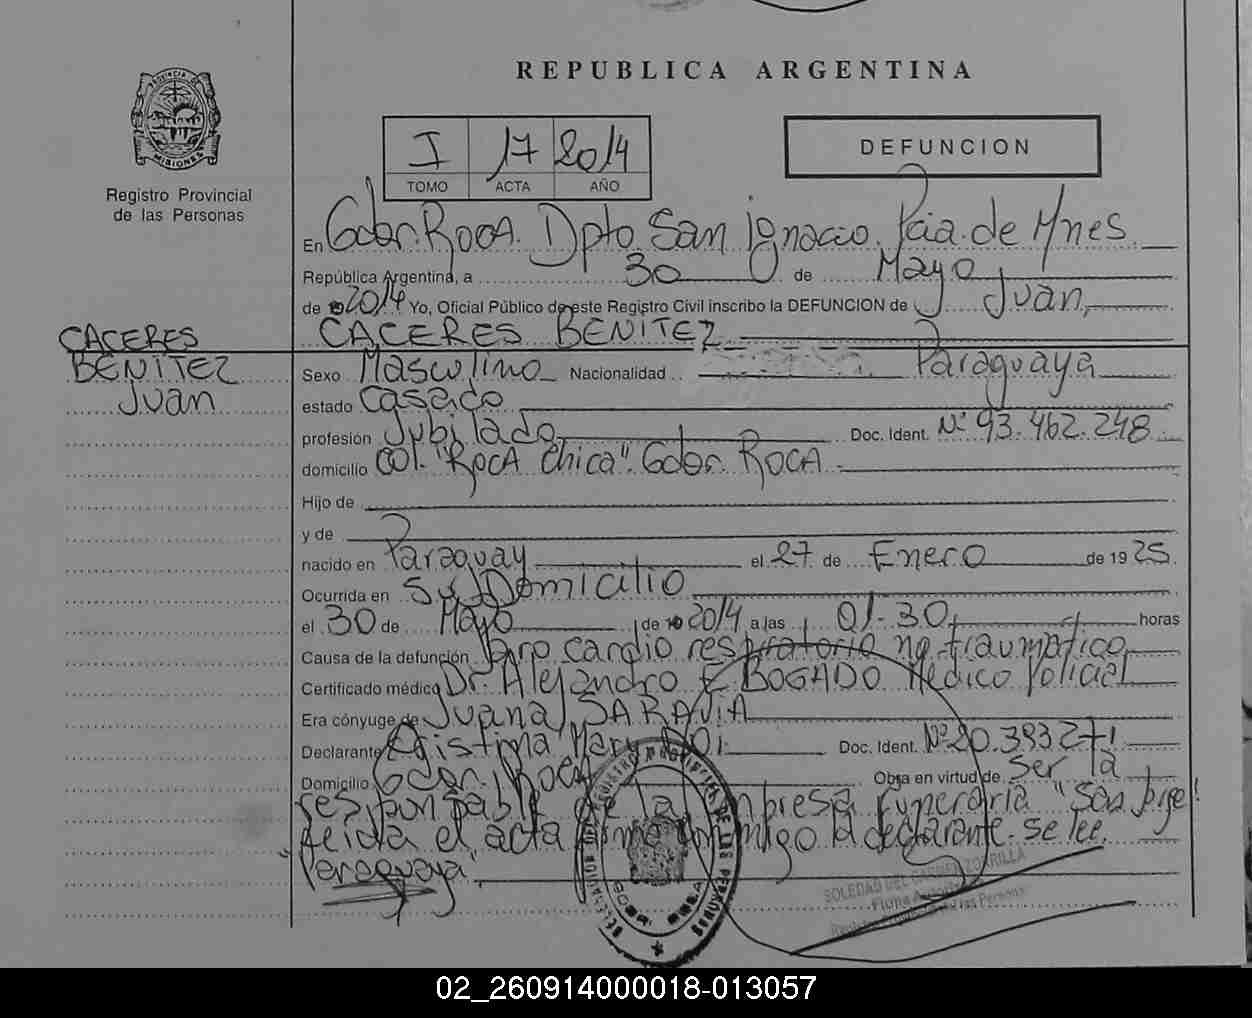 REPUBLICA ARGENTINA
I 17 2014
TOMO ACTA AÑO
DEFUNCION
PROVINCIA DE
MISIONES
Registro Provincial
de las Personas
En Gdor. ROCA. Dpto. San Ignacio. Pcia. de Mnes
República Argentina, a 30 de Mayo
de 2014 Yo, Oficial Público de este Registro Civil inscribo la DEFUNCION de Juan,
CACERES BENITEZ
CACERES
BENITEZ
Juan
Sexo Masculino Nacionalidad Paraguaya
estado Casado
profesión Jubilado Doc. Ident. Nº 93.462.248
domicilio Col. "ROCA Chica". Gdor. ROCA
Hijo de
y de
nacido en Paraguay el 27 de Enero de 1925
Ocurrida en Su Domicilio
el 30 de Mayo de 2014 a las 01.30 horas
Causa de la defunción Paro cardio respiratorio no traumático
Certificado médico Dr. Alejandro E BOGADO Médico Policial
Era cónyuge de Juana SARAVIA
Declarante Cristina Mary Doc. Ident. Nº 20.393271
Domicilio Gdor. ROCA Obra en virtud de ser la
responsable de la Empresa Funeraria "San Jorge".
Leida el acta firma conmigo la declarante. se lee.
"Paraguaya"
SOLEDAD DEL CARMEN ZORRILLA
02_260914000018-013057